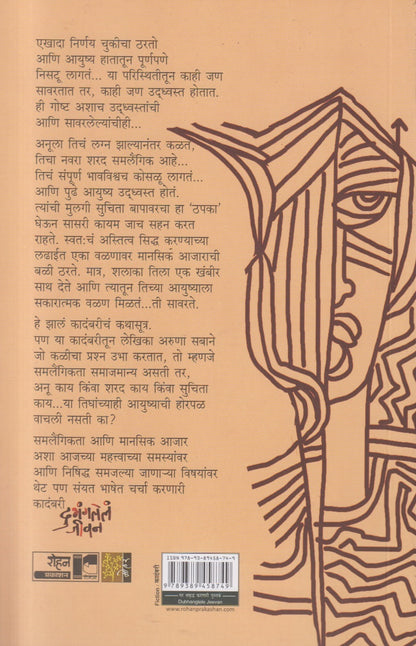 एखादा निर्णय चुकीचा ठरतो
आणि आयुष्य हातातून पूर्णपणे
निसटू लागतं... या परिस्थितीतून काही जण
सावरतात तर, काही जण उद्ध्वस्त होतात.
ही गोष्ट अशाच उद्ध्वस्तांची
आणि सावरलेल्यांचीही...
अनूला तिचं लग्न झाल्यानंतर कळतं,
तिचा नवरा शरद समलैंगिक आहे...
तिचं संपूर्ण भावविश्वच कोसळू लागतं...
आणि पुढे आयुष्य उद्ध्वस्त होतं.
त्यांची मुलगी सुचिता बापावरचा हा ‘ठपका’
घेऊन सासरी कायम जाच सहन करत
राहते. स्वत:चं अस्तित्व सिद्ध करण्याच्या
लढाईत एका वळणावर मानसिक आजाराची
बळी ठरते. मात्र, शलाका तिला एक खंबीर
साथ देते आणि त्यातून तिच्या आयुष्याला
सकारात्मक वळण मिळतं...ती सावरते.
हे झालं कादंबरीचं कथासूत्र.
पण या कादंबरीतून लेखिका अरुणा सबाने
जो कळीचा प्रश्न उभा करतात, तो म्हणजे
समलैंगिकता समाजमान्य असती तर,
अनू काय किंवा शरद काय किंवा सुचिता
काय...या तिघांच्याही आयुष्याची होरपळ
वाचली नसती का?
समलैंगिकता आणि मानसिक आजार
अशा आजच्या महत्त्वाच्या समस्यांवर
आणि निषिद्ध समजल्या जाणाऱ्या विषयांवर
थेट पण संयत भाषेत चर्चा करणारी
कादंबरी
दुभंगलेलं
जीवन
रोहन
प्रकाशन
Fiction / कादंबरी
ISBN 978-93-89458-74-9
9 789389 458749
Dubhanglele Jeevan
www.rohanprakashan.com